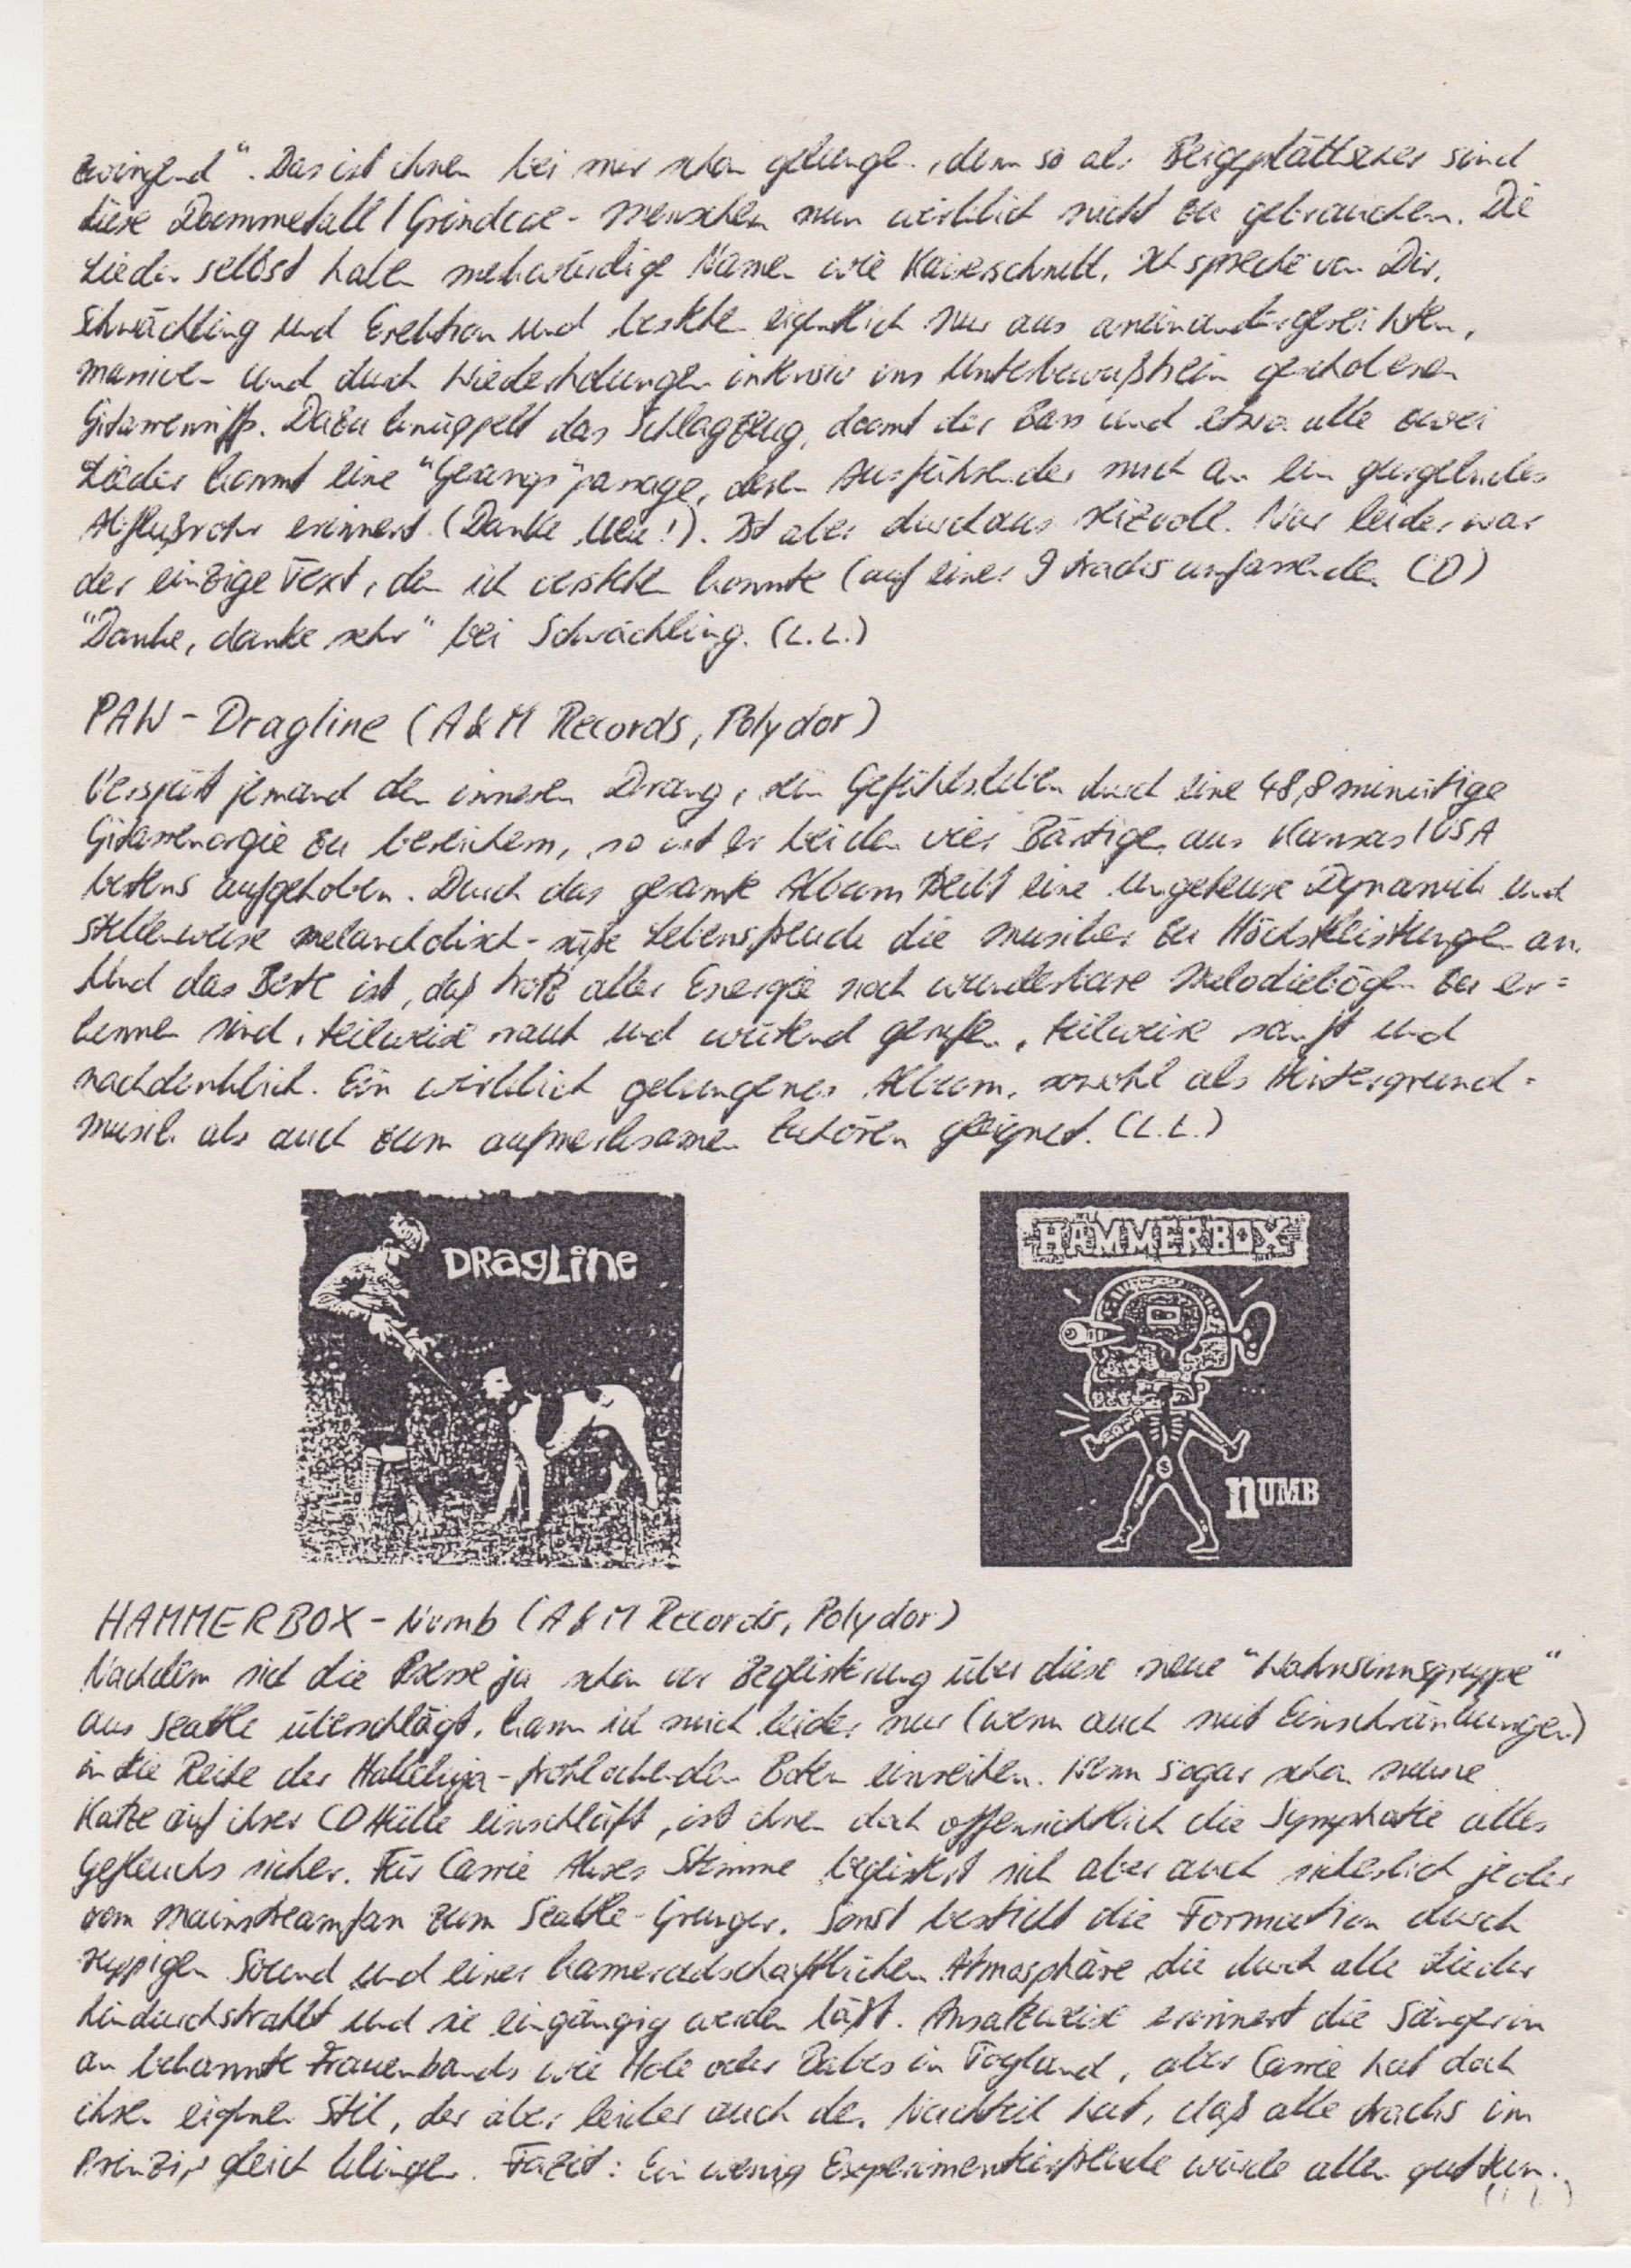 zwingend". Das ist ihnen bei mir schon gelungen, denn so als sind
diese Doommetall/Grindcore-Menschen nun wirklich nicht zu gebrauchen. Die
Lieder selbst haben merkwürdige Namen wie Kaiserschnitt, Ich spreche von Dir,
Schwächling und Erektion und bestehen eigentlich nur aus aneinandergereihten,
massiven und durch Wiederholungen intensiv ins Unterbewußtsein geschobenen
Gitarrenriffs. Dazu knüppelt das Schlagzeug, doomt der Bass und etwa alle zwei
Lieder kommt eine "Gesangs"passage, deren Ausführender mich an ein gurgelndes
Abflußrohr erinnert. (Danke Ueu!). Ist aber durchaus reizvoll. Nur leider war
der einzige Text, den ich verstehen konnte (auf einer 9 tracks umfassenden CD)
"Danke, danke sehr" bei Schwächling. (L.L.)
PAW - Dragline (A&M Records, Polydor)
Verspürt jemand den inneren Drang, sein Gefühlsleben durch eine 48,8 minütige
Gitarrenorgie zu bereichern, so ist er bei den vier Bärtigen aus Kansas/USA
bestens aufgehoben. Durch das gesamte Album treibt eine ungeheure Dynamik und
stellenweise melancholisch-süße Lebensfreude die Musiker zu Höchstleistungen an.
Und das Beste ist, daß trotz aller Energie noch wunderbare Melodiebögen zu er=
kennen sind, teilweise rauh und wütend gerufen, teilweise sanft und
nachdenklich. Ein wirklich gelungenes Album, sowohl als Hintergrund=
musik als auch zum aufmerksamen Zuhören geeignet. (L.L.)
DRagLine
HAMMERBOX
nUMB
HAMMERBOX - Numb (A&M Records, Polydor)
Nachdem sich die Presse ja schon vor Begeisterung über diese neue "Wahnsinnsgruppe"
aus Seattle überschlägt, kann ich mich leider nur (wenn auch mit Einschränkungen)
in die Reihe der Halleluja-frohlockenden Boten einreihen. Wenn sogar schon meine
Katze auf ihrer CD Hülle einschläft, ist ihnen doch offensichtlich die Symphatie alles
Gefleuchs sicher. Für Carrie Akres Stimme begeistert sich aber auch sicherlich jeder
vom Mainstreamfan zum Seattle-Grunger. Sonst besticht die Formation durch
ruppigen Sound und einer kameradschaftlichen Atmosphäre die durch alle Lieder
hindurchstrahlt und sie eingängig werden läßt. Ansatzweise erinnert die Sängerin
an bekannte Frauenbands wie Hole oder Babes in Toyland, aber Carrie hat doch
ihren eigenen Stil, der aber leider auch den Nachteil hat, daß alle tracks im
Prinzip gleich klingen. Fazit: Ein wenig Experimentierfreude würde allen gut tun.
(L.L.)